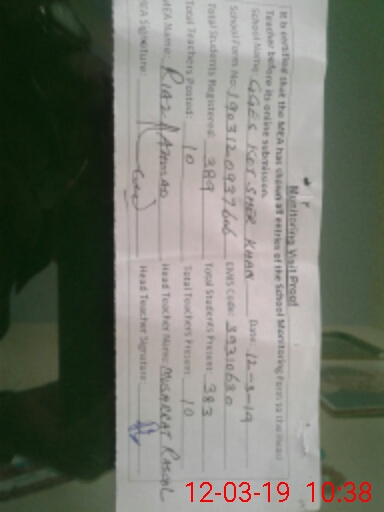 Monitoring Visit Proof
It is certified that the MEA has shown all entries of the School Monitoring Form to the Head
Teacher before its online submission.
School Name: GGES KOT SHER KHAN Date: 12-3-19
School Form No: EMIS Code: 39310680
Total Students Registered: 389 Total Students Present: 383
Total Teachers Posted: 10 Total Teachers Present: 10
MEA Name: RIAZ AHMAD Head Teacher Name: MUSARRAT RASOOL
MEA Signature: Head Teacher Signature:
12-03-19 10:38